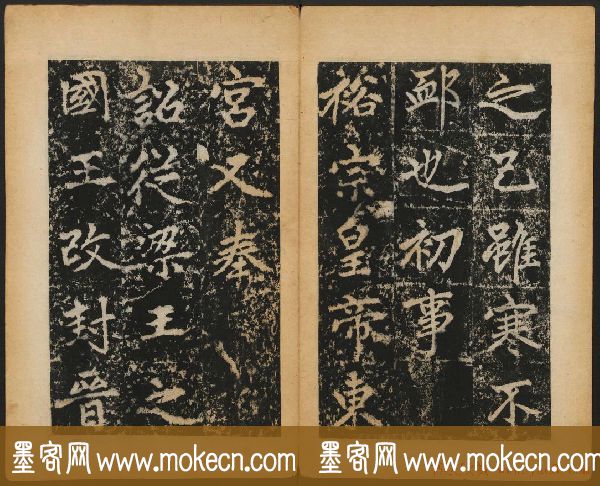 之已雖寒不
卹也初事
裕宗皇帝東
宮又奉
詔從梁王之
國王改封晉
墨客网 www.mokecn.com 墨客网 www.mokecn.com